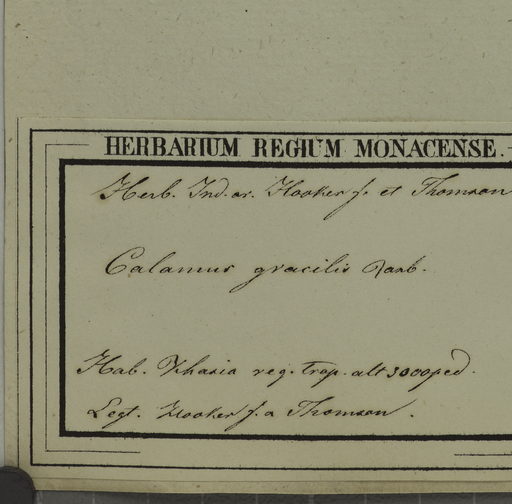 HERBARIUM REGIUM MONACENSE.
Herb. Ind. or. Hooker f. et Thomson
Calamus gracilis Roxb.
Hab. Khasia reg. trop. alt 3000 ped.
Legt. Hooker f. a Thomson.